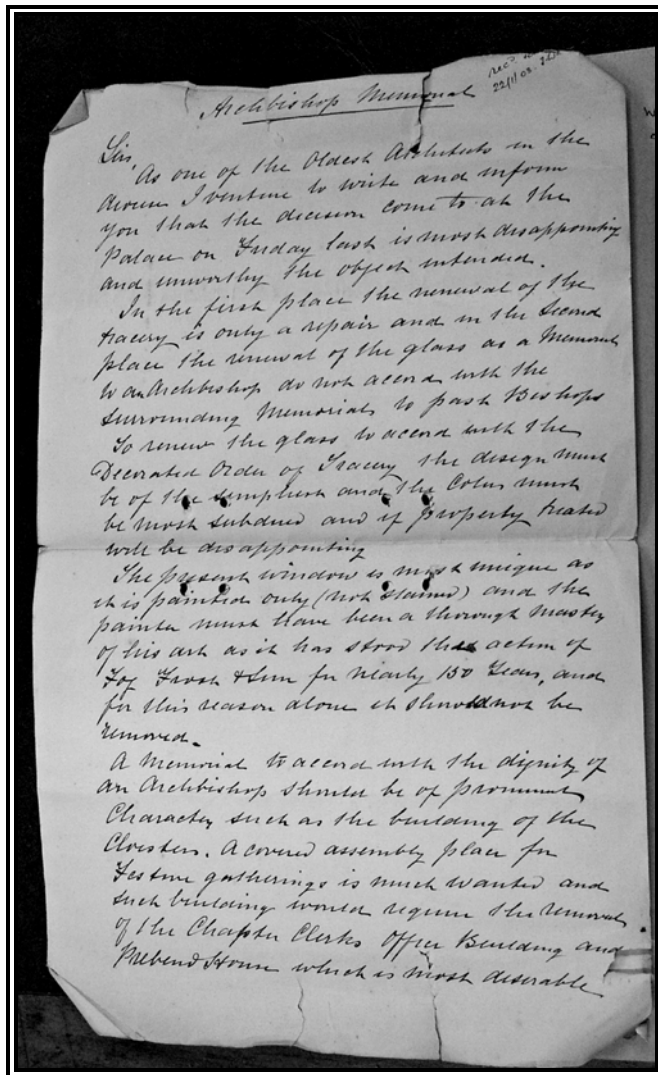 Archbishop Memorial
Rec^d
22/11/03.
Sir,
As one of the Oldest Architects in the
diocese I venture to write and inform
you that the decision come to at the
Palace on Friday last is most disappointing
and unworthy the object intended.
In the first place the renewal of the
tracery is only a repair and in the Second
place the renewal of the glass as a Memorial
to an Archbishop do not accord with the
surrounding Memorials to past Bishops
To renew the glass to accord with the
Decorated Order of Tracery the design must
be of the simplest and the Colour must
be most subdued and if properly treated
will be disappointing
The present window is most unique as
it is painted only (not stained) and the
painter must have been a thorough master
of his art as it has stood the action of
Fog Frost & Sun for nearly 150 Years, and
for this reason alone it should not be
removed.
A Memorial to accord with the dignity of
an Archbishop should be of prominent
Character such as the building of the
Cloisters. A covered assembly place for
Festive gatherings is much wanted and
such building would require the removal
of the Chapter Clerks Office Building and
Prebend House which is most desirable